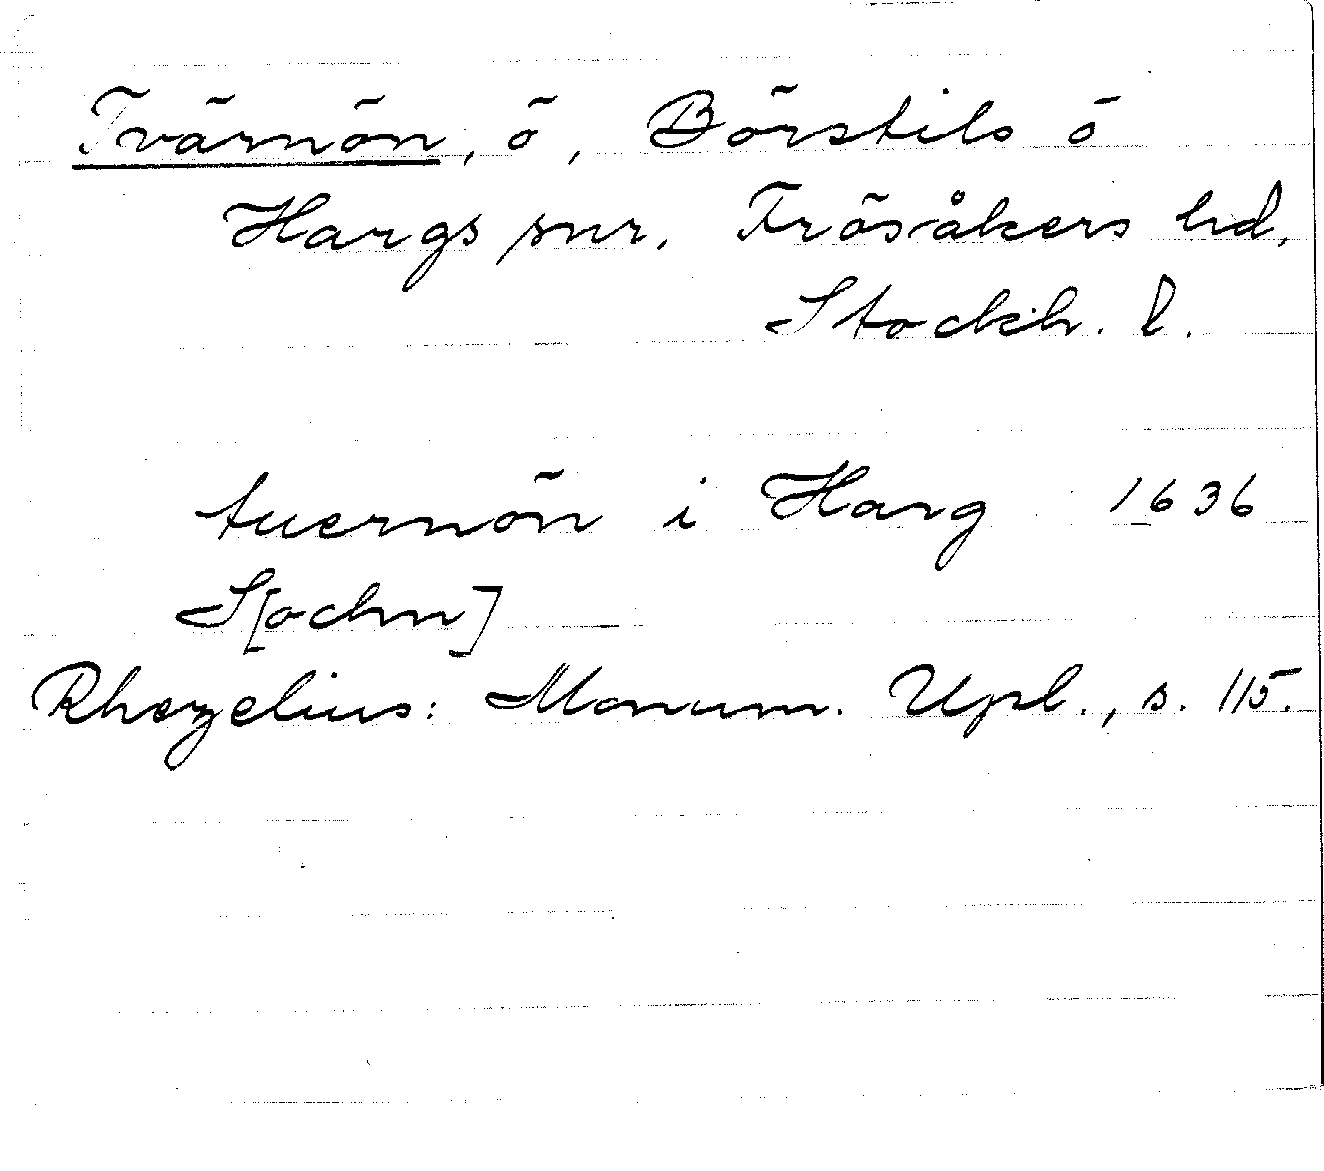 Tvärnön, ö, Börstils o
Hargs snr. Frösåkers hd,
Stockh. l.
tuernön i Harg 1636
S[ochn]
Rhezelius: Monum. Upl., s. 115.